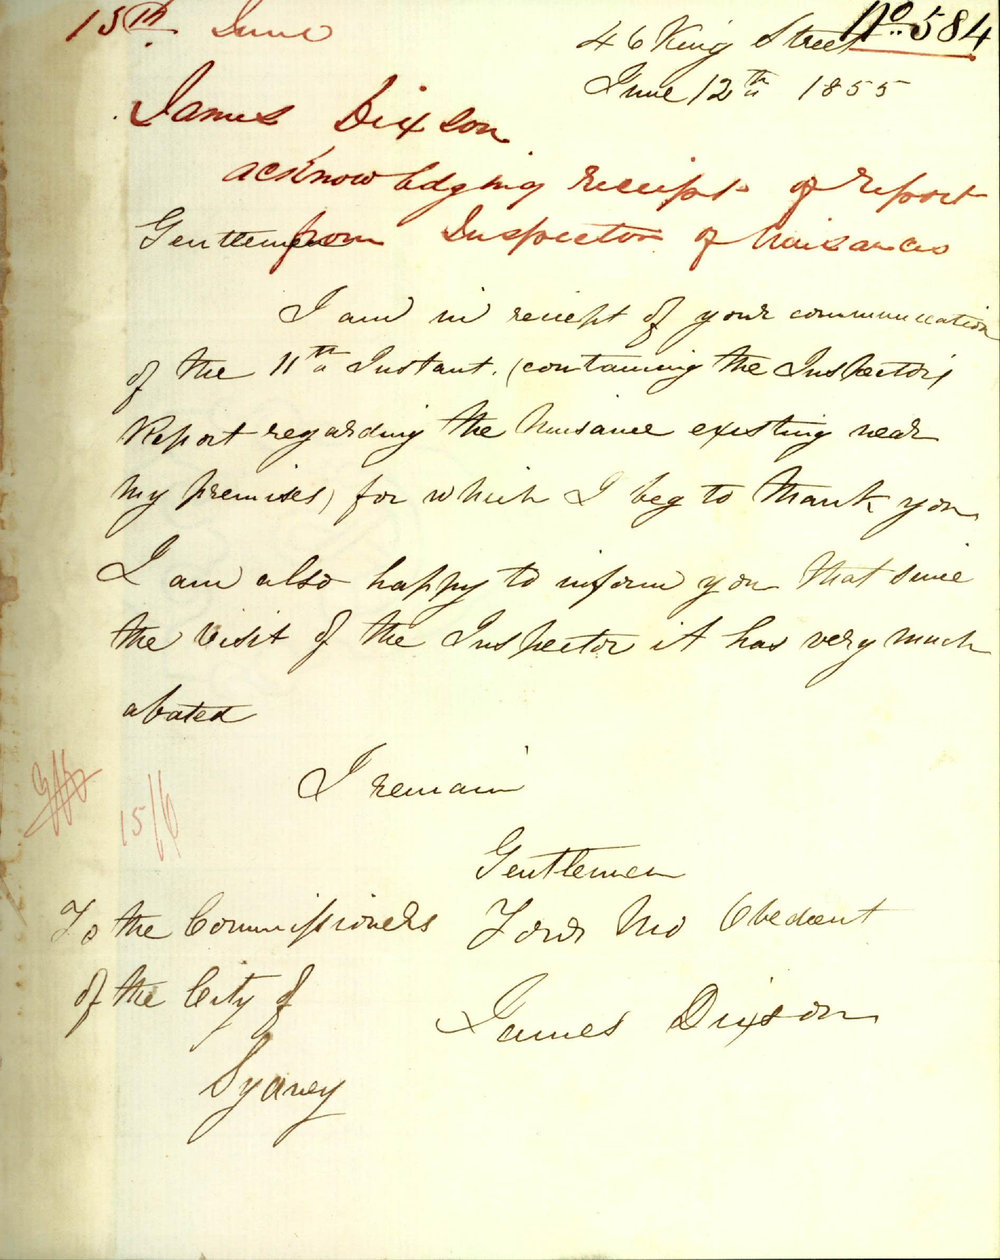 15th June
No. 584
46 King Street
June 12th 1855
James Dixson
acknowledging receipt of report
from Inspector of Nuisances
Gentlemen
I am in reciept of your communication
of the 11th Instant. (containing the Inspectors
Report regarding the Nuisance existing near
my premises) for which I beg to thank you
I am also happy to inform you that since
the visit of the Inspector it has very much
abated
I remain
15/6
Gentlemen
Your Mo Obedient
James Dixson
To the Commissioners
of the City of
Sydney